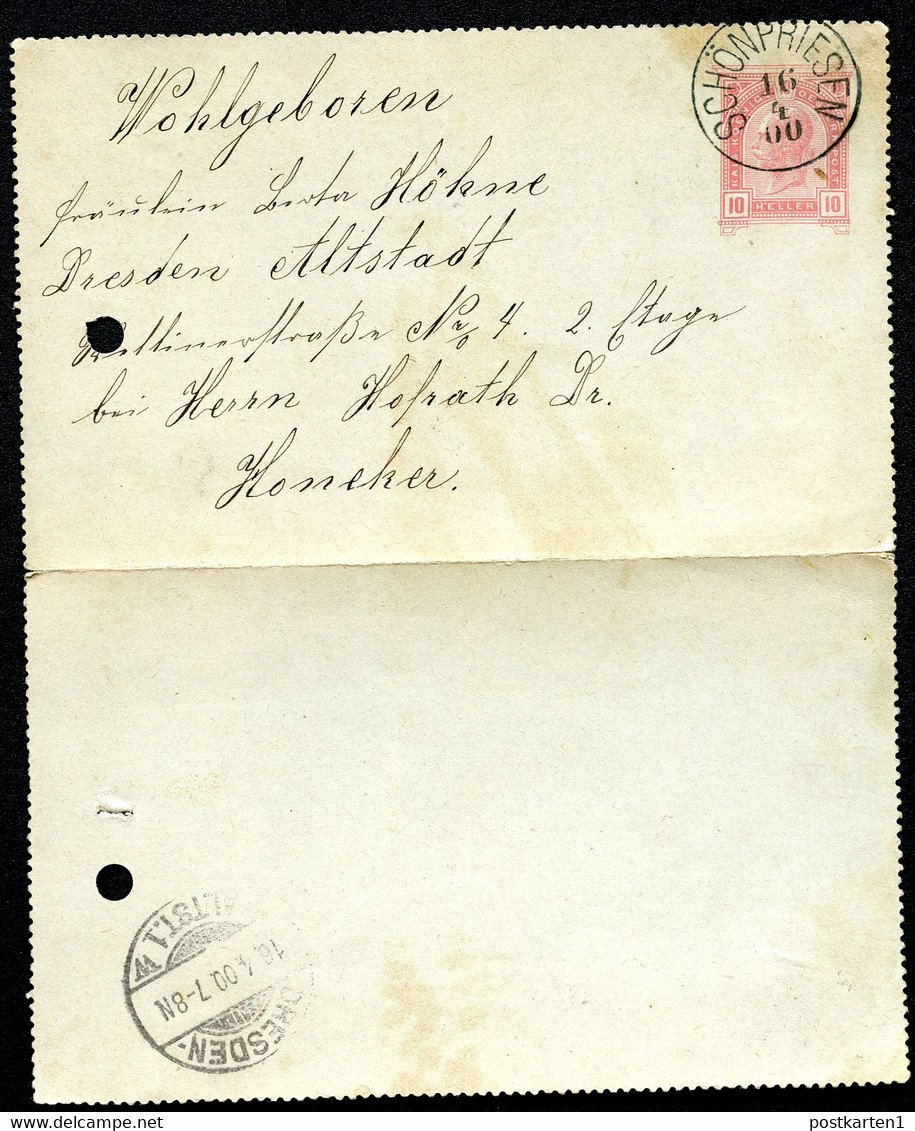 Wohlgeboren
SCHÖNPRIESEN
16
4
00
10 HELLER 10
Fräulein Berta Höhne
Dresden Altstadt
Wettinerstraße Nro 4. 2. Etage
bei Herrn Hofrath Dr.
Honeker.
DRESDEN-ALTST. 1 W
16. 4. 00. 7-8N
postkarten1